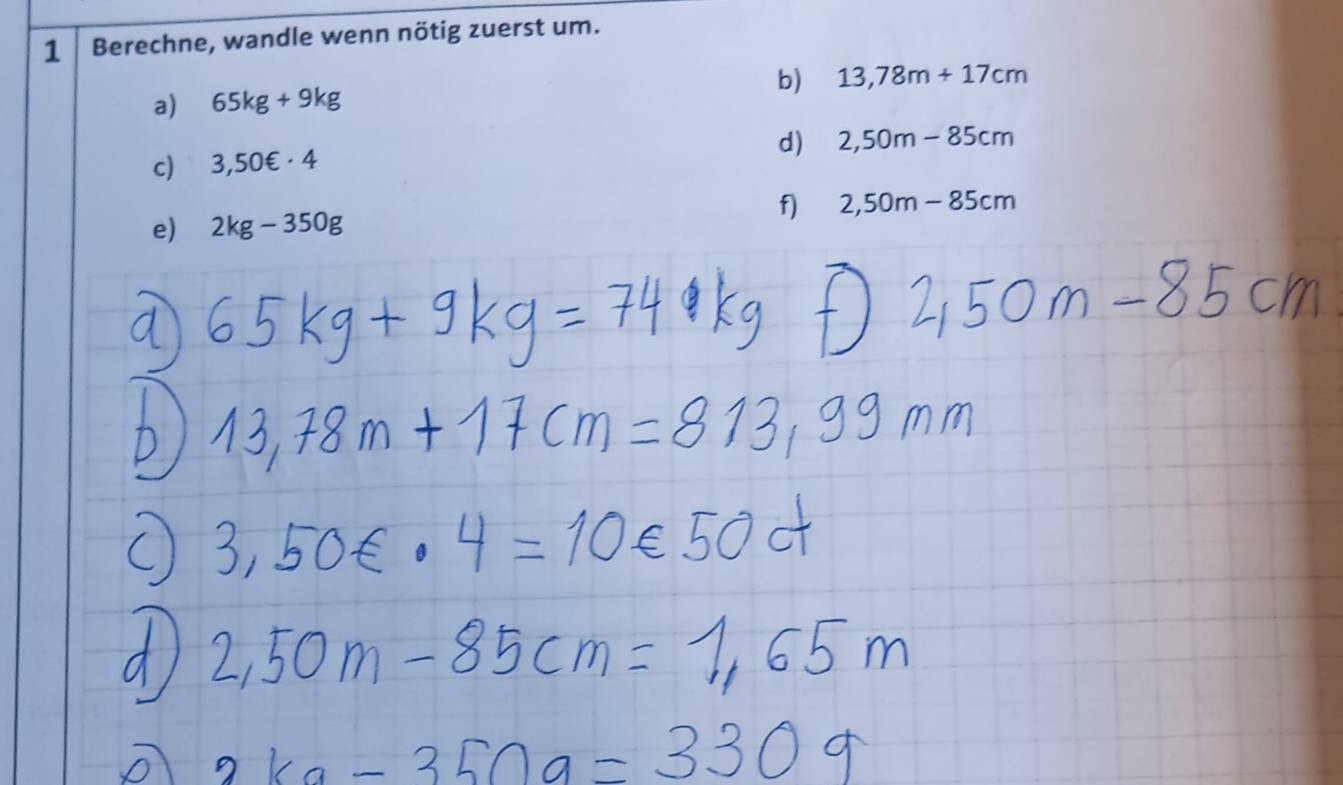 1 Berechne, wandle wenn nötig zuerst um.
a) 65kg + 9kg
b) 13,78m + 17cm
c) 3,50€ · 4
d) 2,50m – 85cm
e) 2kg – 350g
f) 2,50m – 85cm
a) 65kg + 9kg = 74 kg f) 2,50m – 85cm
b) 13,78m + 17cm = 813,99mm
c) 3,50€ · 4 = 10€ 50ct
d) 2,50m – 85cm = 1,65m
e) 2kg – 350g = 330g